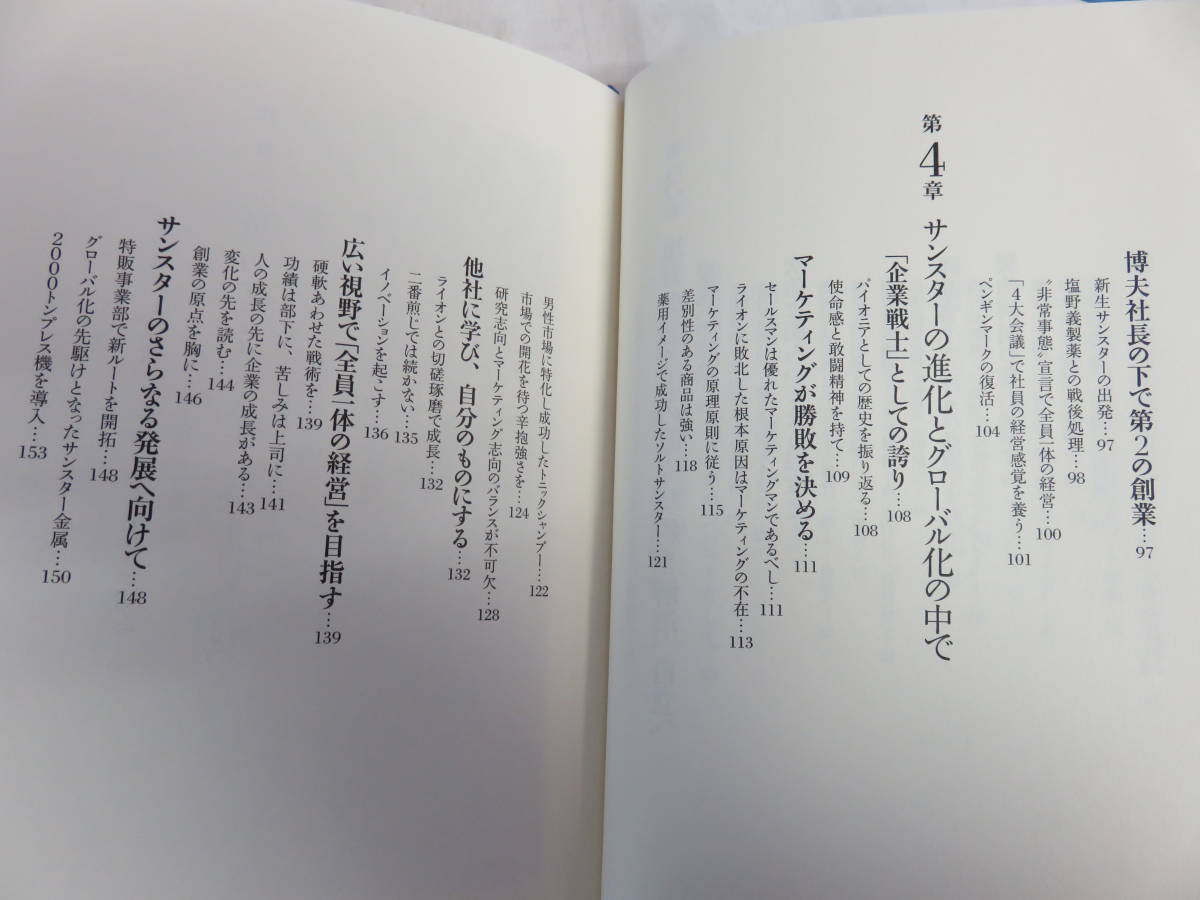 博夫社長の下で第2の創業…97
新生サンスターの出発…97
塩野義製薬との戦後処理…98
〝非常事態〟宣言で全員一体の経営…100
「4大会議」で社員の経営感覚を養う…101
ペンギンマークの復活…104
第4章 サンスターの進化とグローバル化の中で
「企業戦士」としての誇り…108
パイオニアとしての歴史を振り返る…108
使命感と敢闘精神を持て…109
マーケティングが勝敗を決める…111
セールスマンは優れたマーケティングマンであるべし…111
ライオンに敗北した根本原因はマーケティングの不在…113
マーケティングの原理原則に従う…115
差別性のある商品は強い…118
薬用イメージで成功したソルトサンスター…121
男性市場に特化し成功したトニックシャンプー…122
市場での開花を待つ辛抱強さを…124
研究志向とマーケティング志向のバランスが不可欠…128
他社に学び、自分のものにする…132
ライオンとの切磋琢磨で成長…132
二番煎じでは続かない…135
イノベーションを起こす…136
広い視野で「全員一体の経営」を目指す…139
硬軟あわせた戦術を…139
功績は部下に、苦しみは上司に…141
人の成長の先に企業の成長がある…143
変化の先を読む…144
創業の原点を胸に…146
サンスターのさらなる発展へ向けて…148
特販事業部で新ルートを開拓…148
グローバル化の先駆けとなったサンスター金属…150
2000トンプレス機を導入…153